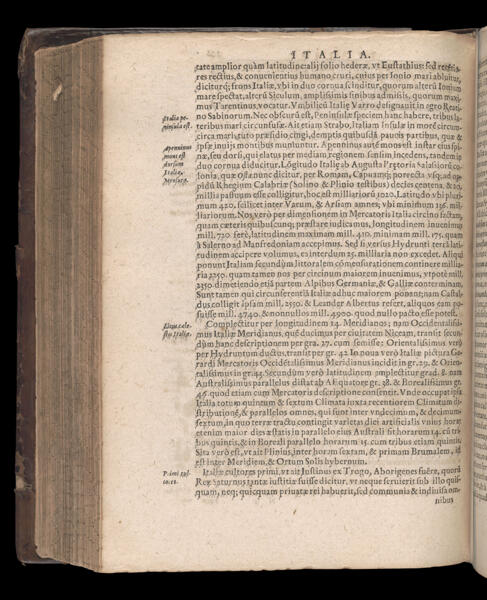 ITALIA.
tate amplior quàm latitudine: alij folio hederæ, vt Eustathius: sed recentio-
res rectius, & conuenientius humano cruri, cuius pes Ionio mari abluitur,
diciturq; frons Italiæ, vbi in duo cornua scinditur, quorum alterũ Ionium
mare spectat, alterũ Siculum, amplissimis sinibus admissis, quorum maxi-
mus Tarentinus vocatur. Vmbilicũ Italiæ Varro designauit in agro Reati-
no Sabinorum. Nec obscurũ est, Peninsulæ speciem hanc habere, tribus la-
Italia pe-
ninsula est.
teribus mari circunfusæ. Ait etiam Strabo, Italiam Insulæ in morẽ circum-
circa maris tuto præsidio cingi, demptis quibusdã paucis partibus, quæ &
ipsæ inuijs montibus muniuntur. Apenninus autẽ mons est instar eius spi-
Apenninus
mons est
dorsum
Italiæ.
Mensura.
næ, seu dorsi, qui elatus per mediam regionem sensim incedens, tandem in
duo cornua diducitur. Lõgitudo Italię ab Augusta Pretoria Salassiorũ co-
lonia, quæ Ostanunc dicitur, per Romam, Capuamq; porrecta vsq; ad op-
pidũ Rhegium Calabriæ (Solino & Plinio testibus) decies centena. & 20.
millia passuum esse colligitur, hoc est milliariorũ 1020. Latitudo vbi pluri-
mum 420. scilicet inter Varum, & Arsiam amnes, vbi minimum 136. mil-
liariorum. Nos verò per dimensionem in Mercatoris Italia circino factam,
quam cæteris quibuscunq; præstare iudicamus, longitudinem inuenimus
mill. 720. ferè, latitudinem maximam mill. 410. minimam mill. 175. quam
à Salerno ad Manfredoniam accepimus. Sed si versus Hydrunti terrã lati-
tudinem accipere volumus, ea interdum 25. milliaria non excedet. Aliqui
ponunt Italiam secundùm littoralem cõmensurationem continere millia-
ria 2250. quam tamen nos per circinum maiorem inuenimus, vtpotè mill.
2550. dimetiendo etiã partem Alpibus Germaniæ, & Galliæ conterminam.
Sunt tamen qui circunferentiã Italiæ adhuc maiorem ponant; nam Castal-
dus colligit ipsam mill. 2550. & Leander Albertus refert, aliquos eam po-
suisse mill. 4740. & nonnullos mill. 4900. quod nullo pacto esse potest.
Complectitur per longitudinem 14. Meridianos; nam Occidentalissi-
Situs cæle-
stis Italiæ.
mus Italiæ Meridianus, quẽ ducimus per ciuitatem Niceam, transit secun-
dùm hanc descriptionem per gra. 27. cum semisse: Orientalissimus verò
per Hydruntum ductus, transit per gr. 42. In noua verò Italiæ pictura Ge-
rardi Mercatoris Occidẽtalissimus Meridianus incidit in gr. 29. & Orien-
talissimus in gr. 44. Secundùm verò latitudinem amplectitur grad. 8. nam
Australissimus parallelus distat ab Æquatore gr. 38. & Borealissimus gr.
46. quod etiam cum Mercatoris descriptione consentit. Vnde occupat ipsa
Italia totum quintum & sextum Climata iuxta recentiorem Climatum di-
stributionẽ, & parallelos omnes, qui sunt inter vndecimum, & decimum
sextum, in quo terræ tractu contingit varietas diei artificialis vnius horæ
etenim maior dies æstatis in parallelo eius Australi fit horarum 14. cũ tri-
bus quintis, & in Boreali parallelo horarum 15. cum tribus etiam quintis.
Sita verò est, vt ait Plinius, inter horam sextam, & primam Brumalem, id
est inter Meridiem, & Ortum Solis hybernum.
Italiæ cultores primi, vt ait Iustinus ex Trogo, Aborigenes fuêre, quorũ
Primi Ita-
liæ
Rex Saturnus tantæ iustitiæ fuisse dicitur, vt neque seruierit sub illo quis-
quam, neq; quicquam priuatæ rei habuerit, sed communia & indiuisa om-
nibus